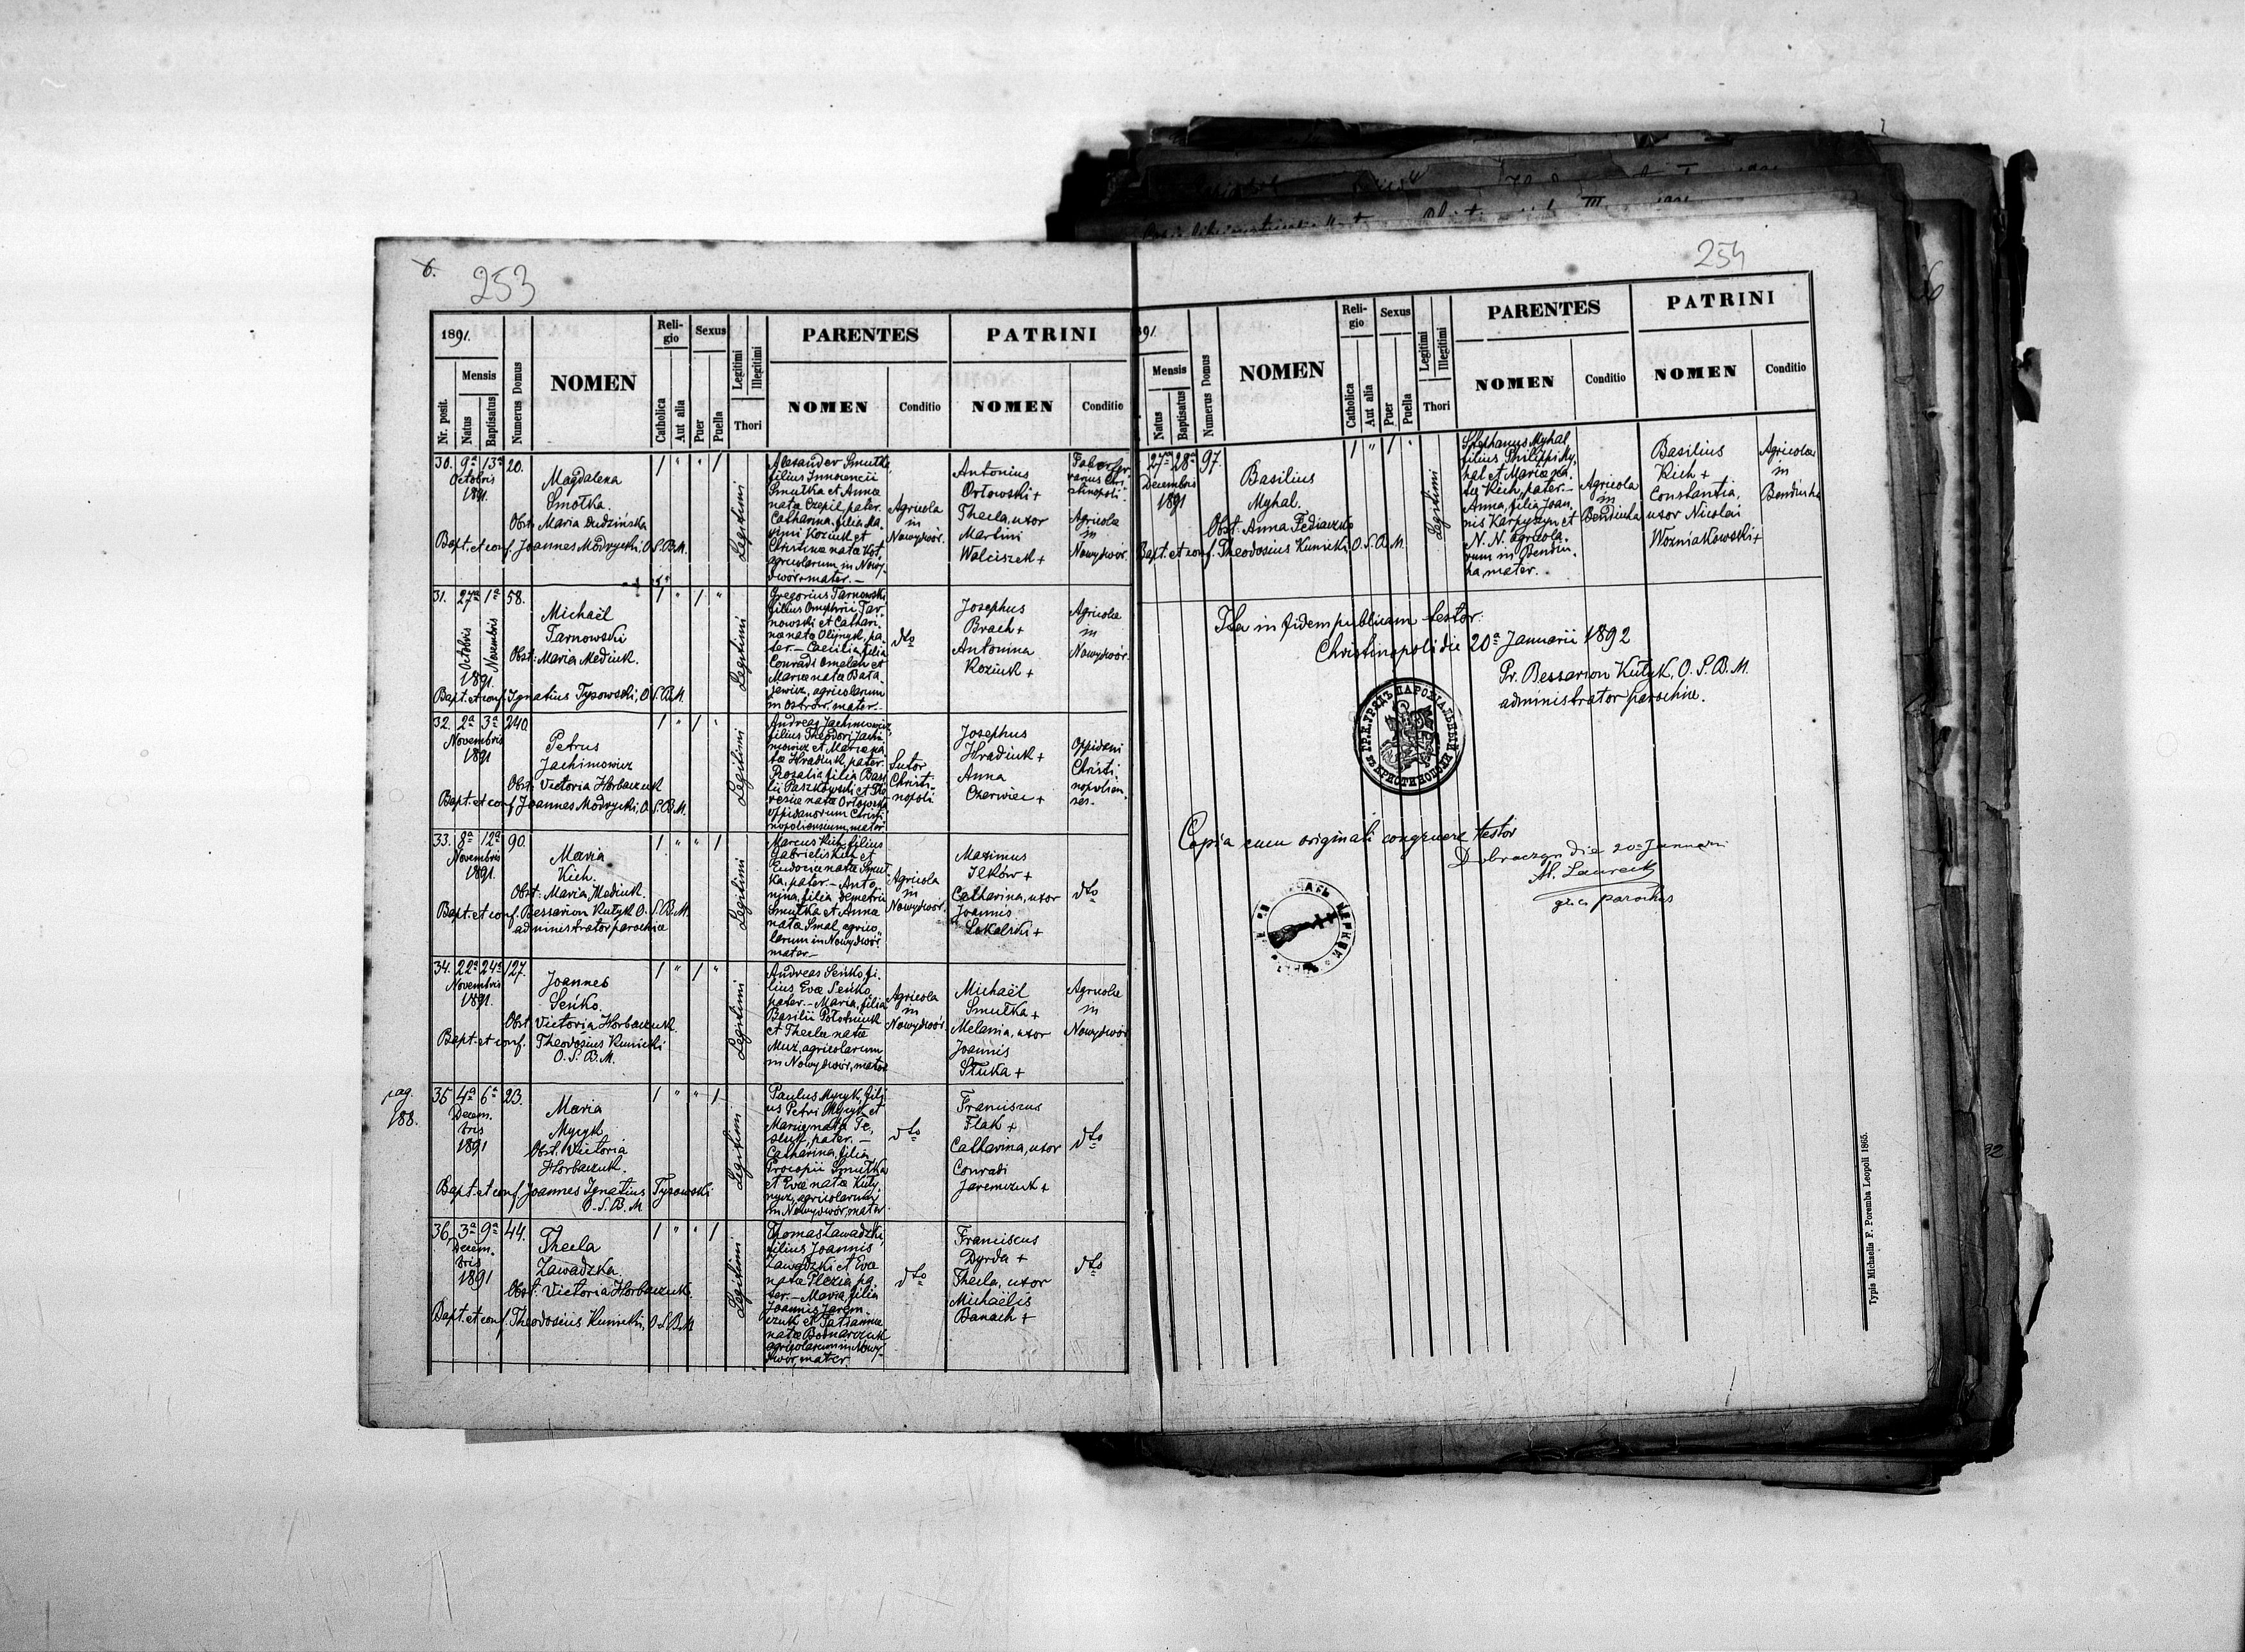 6.
253
1891.
Nr. posit.
Mensis
Natus
Baptisatus
Numerus Domus
NOMEN
Religio
Catholica
Aut alia
Sexus
Puer
Puella
Legitimi
Illegitimi
Thori
PARENTES
NOMEN
Conditio
PATRINI
NOMEN
Conditio
30. 9ª 13ª 20.
Octobris
1891.
Magdalena
Smotka.
Obst: Maria Dudzińska
Bapt. et conf. Joannes Modrycki, O.S.B.M.
1 " " 1
Legitimi
Alexander Smutka,
filius Innocencii
Smutka et Annæ
natæ Czepil, pater.
Catharina, filia Ma-
Koziuk et
Christinæ natæ Kot,
agricolarum in Nowy-
dwór, mater.
Agricola
in
Nowydwór.
Antonius
Orłowski +
Thecla, uxor
Martini
Walciszek +
Agricola
in
Nowydwór.
31. 27ª 1ª 58.
Octobris
Novembris
1891.
Michaël
Tarnowski
Obst: Maria Mediuk.
Bapt. et conf. Ignatius Tysowski, O.S.B.M.
1 " 1 "
Legitimi
Gregorius Tarnowski
filius Omphrii Tar-
nowski et Cathari-
næ natæ Olijnyk, pa-
ter. – Caecilia, filia
Conradi Omelan et
Mariæ natæ Bata-
jewicz, agricolarum
in Ostrów, mater.
dto
Josephus
Brach +
Antonina
Koziuk +
Agricolæ
in
Nowydwór.
32. 2ª 3ª 240.
Novembris
1891
Petrus
Jachimowicz
Obst: Victoria Horbaczuk
Bapt. et conf. Joannes Modrycki, O.S.B.M.
1 " 1 "
Legitimi
Andreas Jachimowicz,
filius Theodori Jachi-
mowicz et Mariæ na-
tæ Hradiuk, pater.
Rosalia filia Basi-
lii Paszkowski et The-
resiæ natæ Orłowska
oppidanorum Christi-
nopoliensium, mater
Sutor
Christi-
nopoli
Josephus
Hradiuk +
Anna
Czerwiec +
Oppidani
Christi-
nopolien-
ses.
33. 8ª 12ª 90.
Novembris
1891.
Maria
Kich.
Obst: Maria Mediuk.
Bapt. et conf. Bessarion Kułyk O.S.B.M.
administrator parochiæ
1 " " 1
Legitimi
Marcus Kich, filius
Gabrielis Kich et
Eudociæ natæ Smut-
ka, pater. – Anto-
nina, filia Demetrii
Smutka et Annæ
natæ Smal, agrico-
larum in Nowydwór
mater.
Agricola
in
Nowydwór.
Maximus
Ilków +
Catharina, uxor
Joannis
Sokalski +
dto
34. 22ª 24ª 127.
Novembris
1891.
Joannes
Seńko.
Obst: Victoria Horbaczuk.
Bapt. et conf. Theodosius Kunicki
O.S.B.M.
1 " 1 "
Legitimi
Andreas Seńko, fi-
lius Evæ Seńko
pater. – Maria, filia
Basilii Połotniuk
et Theclæ natæ
Muz, agricolarum
in Nowydwór, mater
Agricola
in
Nowydwór.
Michaël
Smutka +
Melania, uxor
Joannis
Stuka +
Agricolæ
in
Nowydwór
pag.
188.
35 4ª 6ª 23.
Decem-
bris
1891
Maria
Mycyk
Obst. Victoria
Horbaczuk.
Bapt. et conf. Joannes Ignatius Tysowski
O.S.B.M.
1 " " 1
Legitimi
Paulus Mycyk, fili-
us Petri Mycyk et
Mariæ natæ Te-
pater. –
Catharina, filia
Procopii Smutka
et Evæ natæ
agricolarum
in Nowydwór, mater
dto
Franciscus
Flak +
Catharina, uxor
Conradi
Jaremczuk +
dto
36. 3ª 9ª 44.
Decem-
bris
1891
Thecla
Zawadzka.
Obst: Victoria Horbaczuk.
Bapt. et conf. Theodosius Kunicki, O.S.B.M
1 " " 1
Legitimi
Thomas Zawadzki,
filius Joannis
Zawadzki et Evæ
natæ Plezia, pa-
ter. – Maria, filia
Joannis Jarem-
czuk et Tatiannæ
natæ Bodnarczuk
agricolarum in Nowy-
dwór, mater.
dto
Franciscus
Dyrda +
Thecla, uxor
Michaëlis
Banach +
dto
254
Mensis
Natus
Baptisatus
Numerus Domus
NOMEN
Religio
Catholica
Aut alia
Sexus
Puer
Puella
Legitimi
Illegitimi
Thori
PARENTES
NOMEN
Conditio
PATRINI
NOMEN
Conditio
27ª 28ª 97.
Decembris
1891
Basilius
Myhal.
Obst: Anna Fediaczko
Bapt. et conf. Theodosius Kunicki O.S.B.M.
1 " 1 "
Legitimi
Stephanus Myhal,
filius Philippi My-
hal et Mariæ na-
tæ Kich, pater. –
Anna, filia Joan-
nis Karpyszyn et
N. N. agricola-
rum in Bendiu-
ha, mater.
Agricola
in
Bendiuha
Basilius
Kich +
Constantia,
uxor Nicolai
Wozniakowski +
Agricolæ
in
Bendiuha
Ita in fidem publicam testor.
Christinopoli die 20ª Januarii 1892
Pr. Bessarion Kułyk, O.S.B.M.
administrator parochiæ.
ГР. К. УРЯДЪ ПАРОХІАЛЬНЫЙ
въ КРИСТИНОПОЛИ
Copia cum originali congruere testor
Dobraczyn die 20 Januarii
Al. Laurecki
gr. c. parochus
Typis Michaelis F. Poremba Leopoli 1865.